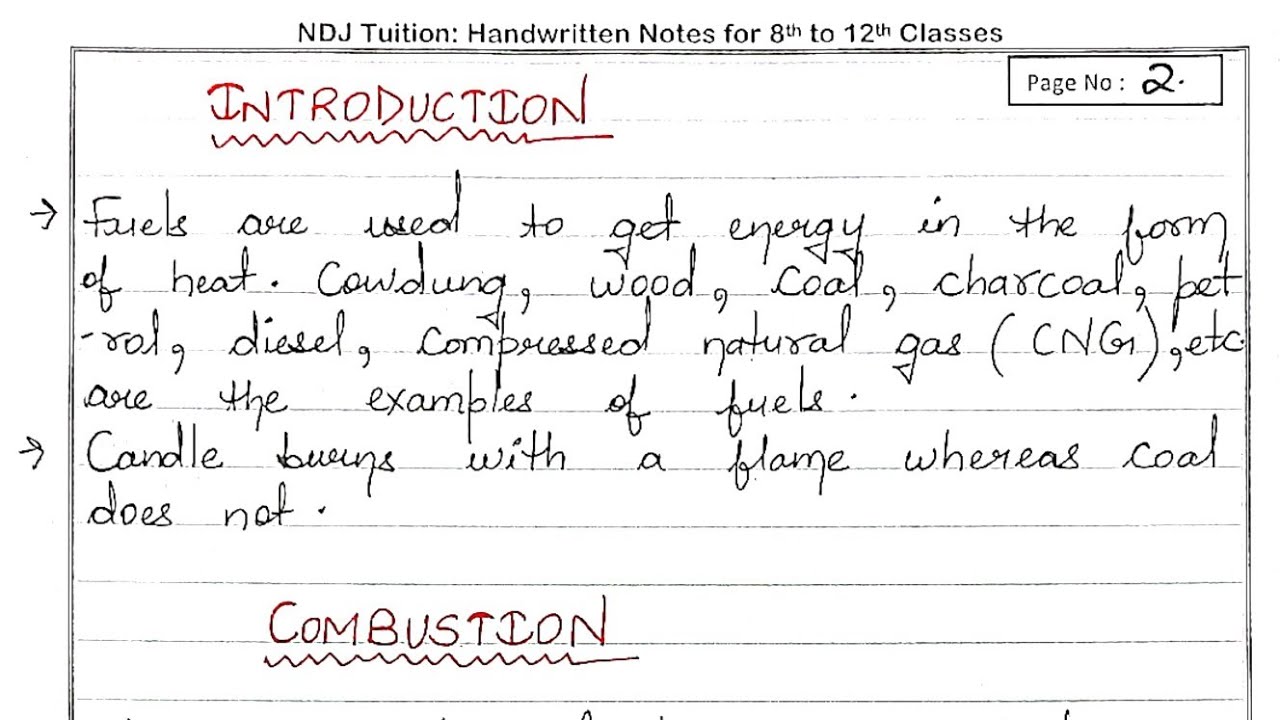 NDJ Tuition: Handwritten Notes for 8th to 12th Classes
Page No : 2.
INTRODUCTION
→ Fuels are used to get energy in the form
of heat. Cowdung, wood, coal, charcoal, pet
-rol, diesel, compressed natural gas (CNG), etc.
are the examples of fuels.
→ Candle burns with a flame whereas coal
does not.
COMBUSTION